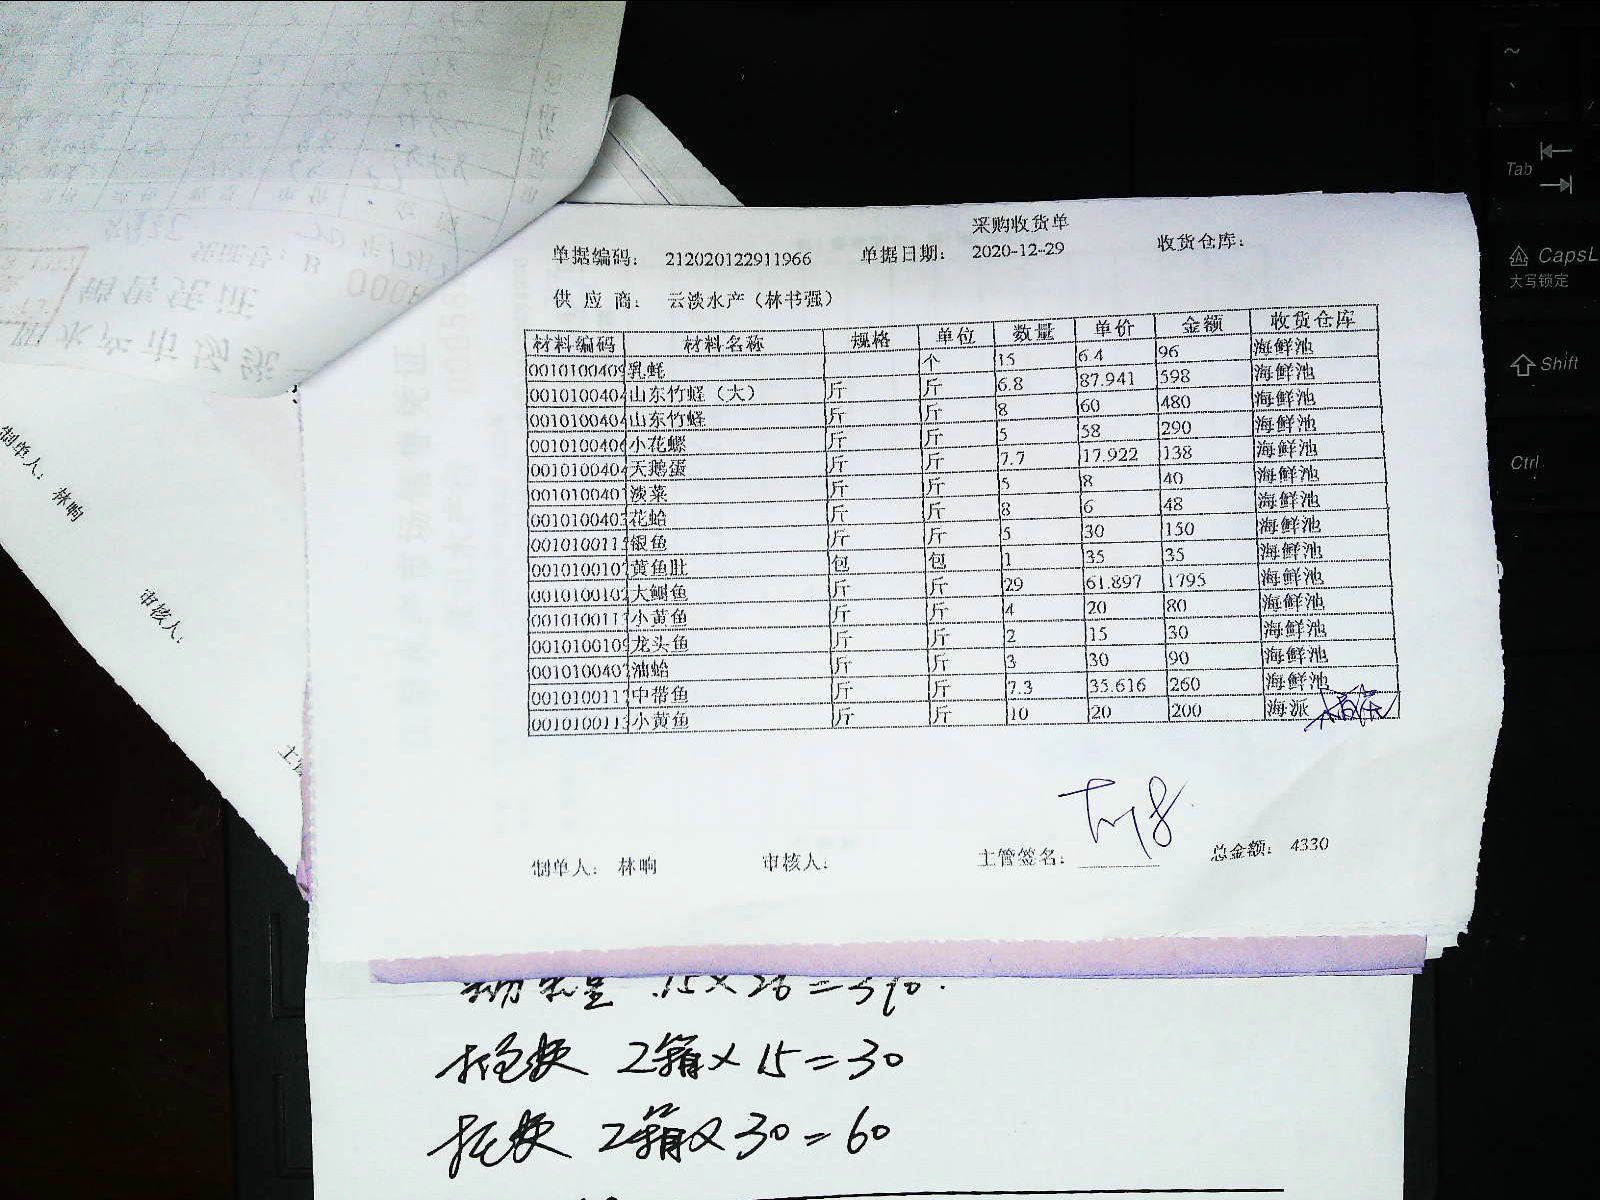 采购收货单
单据编码： 212020122911966 单据日期： 2020-12-29 收货仓库：
供 应 商： 云淡水产（林书强）
材料编码 材料名称 规格 单位 数量 单价 金额 收货仓库
0010100409 乳蚝 个 15 6.4 96 海鲜池
001010040 山东竹蛏（大） 斤 斤 6.8 87.941 598 海鲜池
001010040 山东竹蛏 斤 斤 8 60 480 海鲜池
001010040 小花螺 斤 斤 5 58 290 海鲜池
001010040 天鹅蛋 斤 斤 7.7 17.922 138 海鲜池
001010040 淡菜 斤 斤 5 8 40 海鲜池
001010040 花蛤 斤 斤 8 6 48 海鲜池
001010011 银鱼 斤 斤 5 30 150 海鲜池
001010010 黄鱼肚 包 包 1 35 35 海鲜池
001010010 大鮰鱼 斤 斤 29 61.897 1795 海鲜池
001010011 小黄鱼 斤 斤 4 20 80 海鲜池
001010010 龙头鱼 斤 斤 2 15 30 海鲜池
001010040 油蛤 斤 斤 3 30 90 海鲜池
001010011 中带鱼 斤 斤 7.3 35.616 260 海鲜池
001010011 小黄鱼 斤 斤 10 20 200 海派
制单人： 林响 审核人： 主管签名： 总金额： 4330
制单人： 林响
审核人：
主管
15×26=390.
2箱×15=30
2箱×30=60
~
Tab
CapsL
大写锁定
Shift
Ctrl